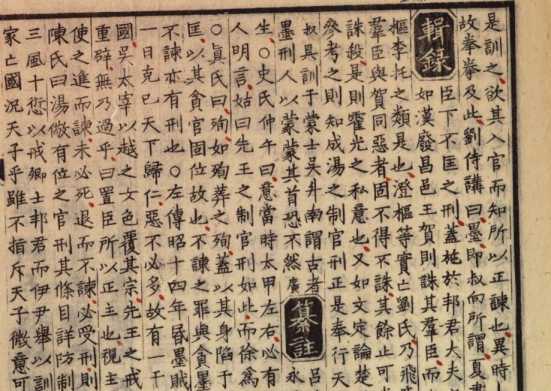 是訓之欲其入官而知所以正諫也異時
故拳拳及此劉侍講曰墨即叔向所謂夏書
輯録臣下不匡之刑蓋施於邦君大夫
如漢廢昌邑王賀則誅其羣臣而
樞李托之類是也澄樞等實亡劉氏乃飛
羣臣與賀同惡者固不得不誅其餘止可
誅殺是則霍光之私意也又如文定論楚
參考之則知成湯之制官刑正是奉行天
叔具訓于蒙士吳斗南謂古者纂註呂
墨刑人以蒙蒙其首恐不然廣永
生○史氏仲午曰意當時太甲左右必有
人明言姑曰先王之制官刑如此而徐爲
○真氏曰殉如殉葬之殉蓋以其身陷于
匡以其貪官固位故也不諫之罪與貪墨
不諫亦有刑也○左傳昭十四年昏墨賊
一日克己天下歸仁惡不必多故有一于
國吳太宰以越之女色覆其宗先王之戒
重辟無乃過乎曰置臣所以正主也視主
使之進而諫未必死退而不諫必受刑則
陳氏曰湯儆有位之官刑其條目詳防制
三風十愆以戒卿士邦君而伊尹舉以訓
家亡國況天子乎雖不指斥天子微意可